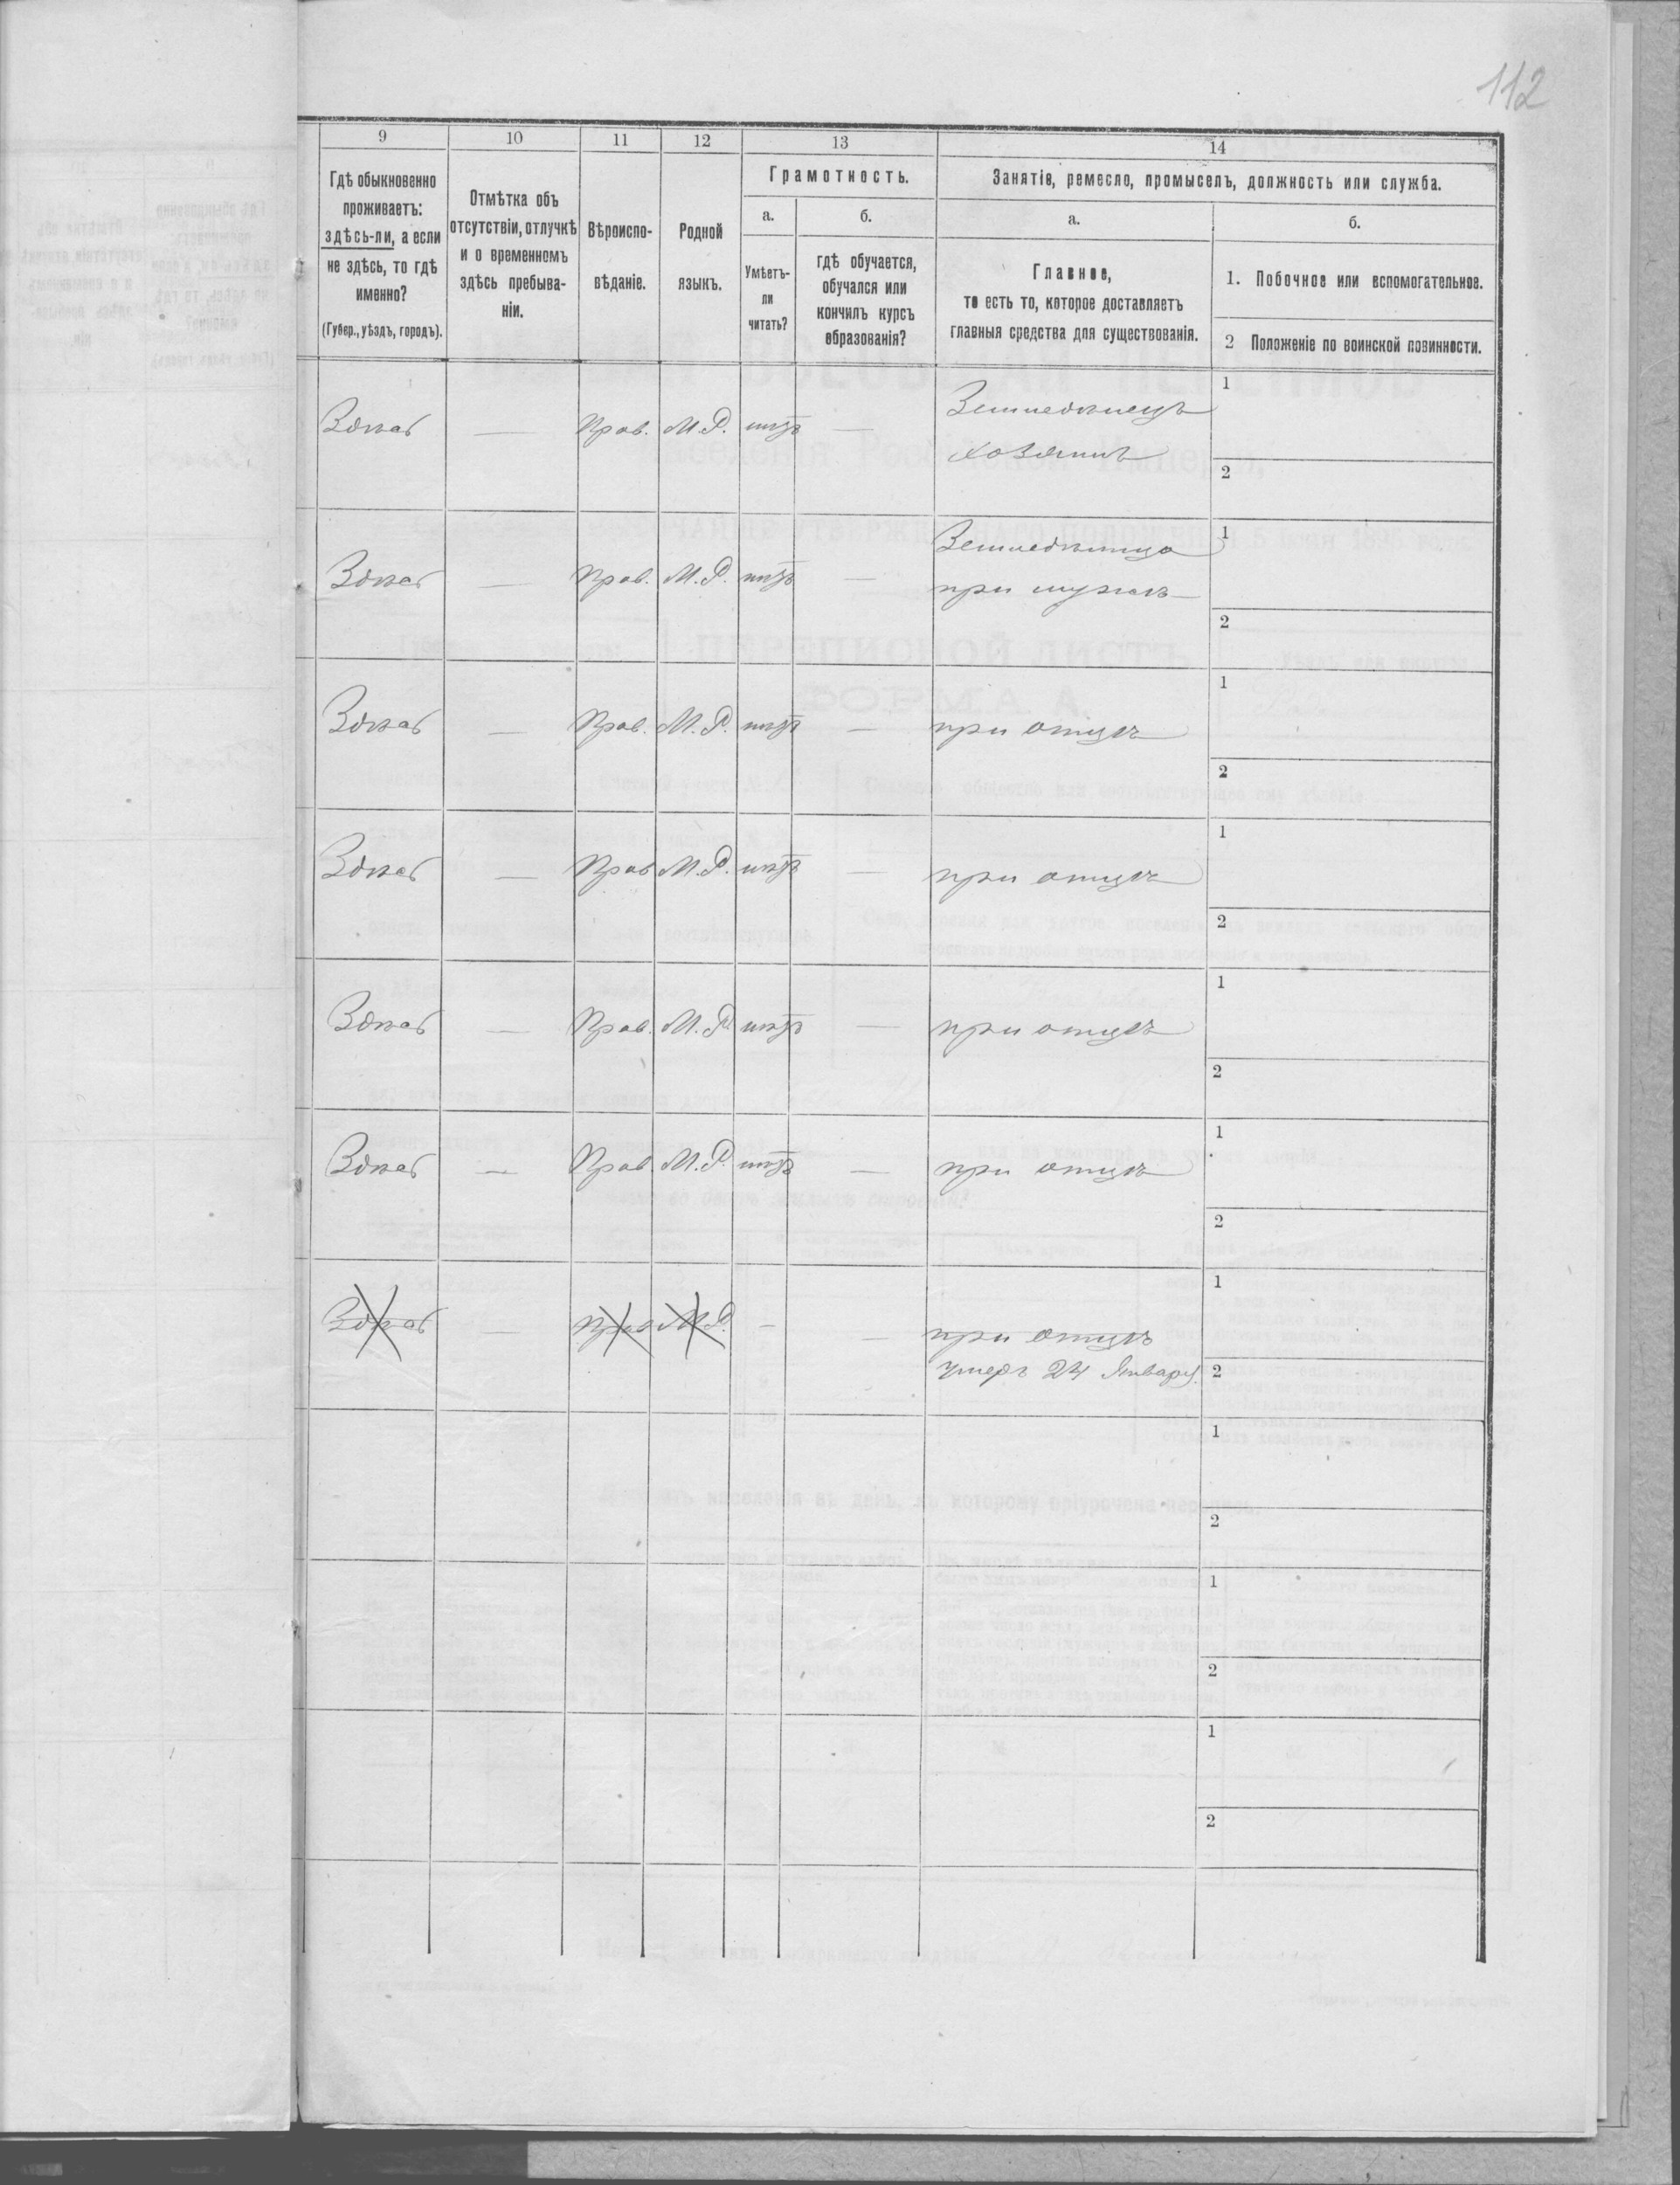 112
9 10 11 12 13 14
Гдѣ обыкновенно
проживаетъ:
здѣсь-ли, а если
не здѣсь, то гдѣ
именно?
(Губер., уѣздъ, городъ).
Отмѣтка объ
отсутствіи, отлучкѣ
и о временномъ
здѣсь пребыва-
ніи.
Вѣроиспо-
вѣданіе.
Родной
языкъ.
Грамотность.
а.
Умѣетъ-
ли
читать?
б.
гдѣ обучается,
обучался или
кончилъ курсъ
образованія?
Занятіе, ремесло, промыселъ, должность или служба.
а.
Главное,
то есть то, которое доставляетъ
главныя средства для существованія.
б.
1. Побочное или вспомогательное.
2 Положеніе по воинской повинности.
Здѣсь — Прав. М.Р. нѣтъ — Земледѣлецъ 1
хозяинъ
2
Здѣсь — Прав. М.Р. нѣтъ — Земледѣлица 1
при мужѣ
2
Здѣсь — Прав. М.Р. нѣтъ — при отцѣ 1
2
Здѣсь — Прав М.Р. нѣтъ — при отцѣ 1
2
Здѣсь — Прав. М.Р. нѣтъ — при отцѣ 1
2
Здѣсь — Прав. М.Р. нѣтъ — при отцѣ 1
2
Здѣсь — Прав М.Р. — — при отцѣ 1
умеръ 24 Января. 2
1
2
1
2
1
2